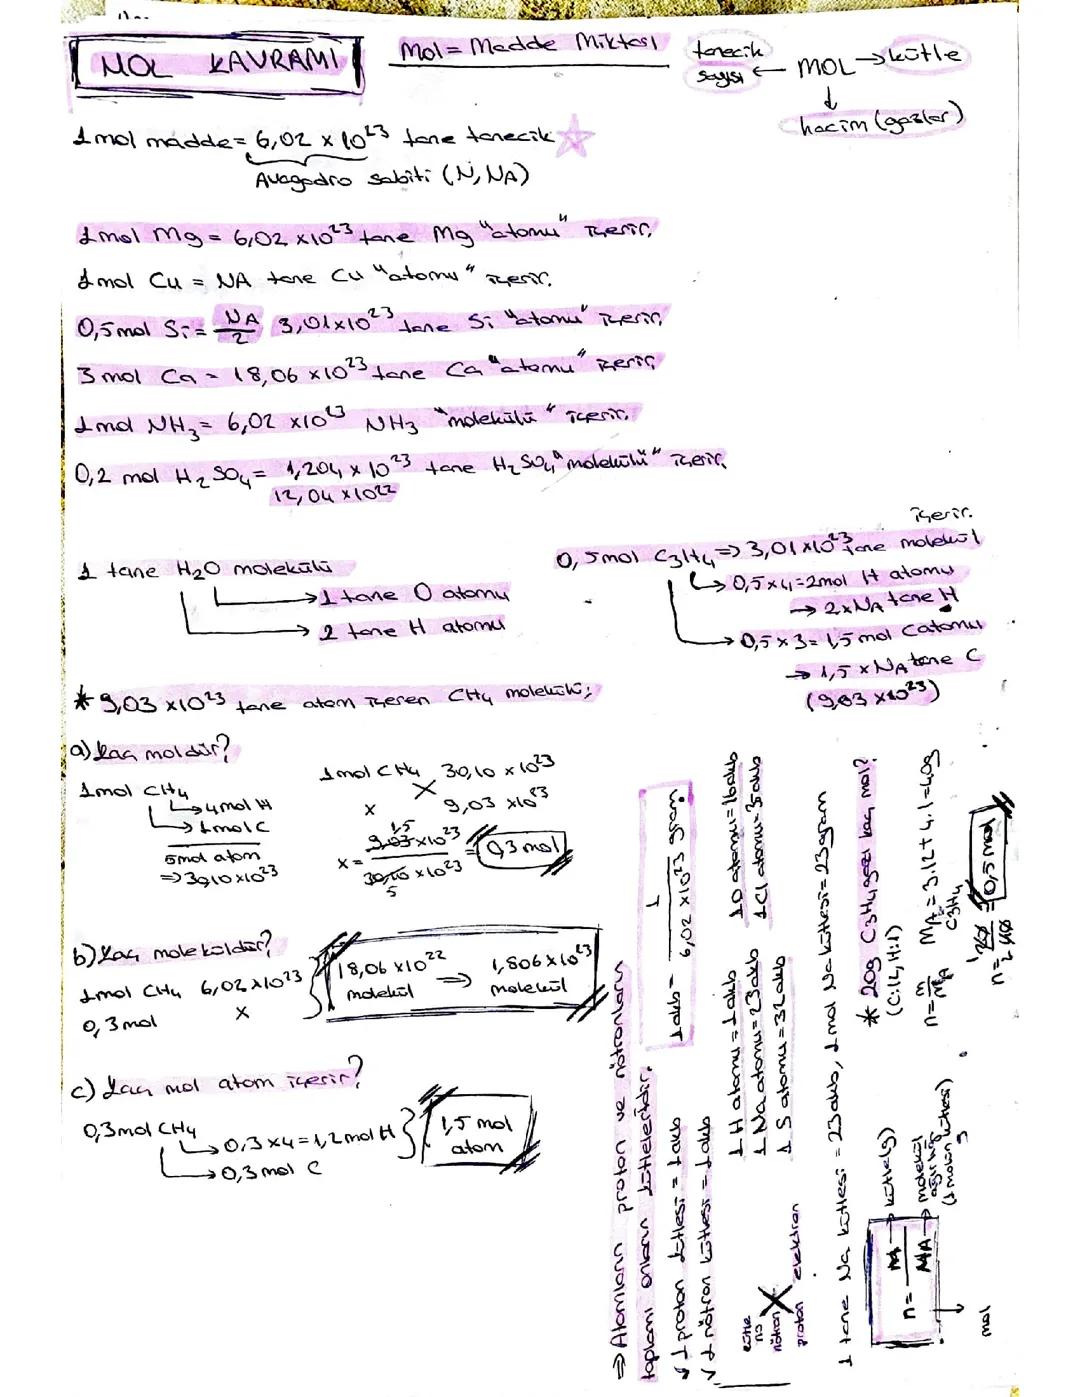 MOL KAVRAMI
Mol = Madde Miktarı
tanecik sayısı ← MOL → kütle
↓
hacim (gazlar)
1 mol madde = 6,02 x 10²³ tane tanecik
Avagadro sabiti (N, NA)
1 mol Mg = 6,02 x10²³ tane Mg "atomu" içerir.
1 mol Cu = NA tane Cu "atomu" içerir.
0,5 mol Si = NA/2 3,01x10²³ tane Si "atomu" içerir.
3 mol Ca = 18,06 x10²³ tane Ca "atomu" içerir.
1 mol NH₃ = 6,02 x10²³ NH₃ "molekülü" içerir.
0,2 mol H₂SO₄ = 1,204 x 10²³ tane H₂SO₄ "molekülü" içerir.
12,04 x10²²
1 tane H₂O molekülü
→ 1 tane O atomu
→ 2 tane H atomu
içerir.
0,5mol C₃H₄ => 3,01x10²³ tane molekül
→ 0,5x4=2mol H atomu
→ 2xNA tane H
→ 0,5x3=1,5 mol C atomu
→ 1,5 x NA tane C
(9,03 x10²³)
* 9,03 x10²³ tane atom içeren CH₄ molekülü;
a) Kaç moldür?
1mol CH₄
→ 4mol H
→ 1molC
5mol atom
=> 30,10x10²³
1mol CH₄ 30,10 x 10²³
x 9,03 x10²³
x = 9,03x10²³ / 30,10 x10²³ = 0,3 mol
1,5
5
b) Kaç moleküldür?
1mol CH₄ 6,02x10²³
0,3 mol x
18,06 x10²² molekül => 1,806x10²³ molekül
c) Kaç mol atom içerir?
0,3mol CH₄
→ 0,3x4=1,2mol H
→ 0,3 mol C
1,5 mol atom
=> Atomların proton ve nötronların
toplamı onların kütleleridir.
1akb = 1 / 6,02 x10²³ gram
√ 1 proton kütlesi = 1akb
√ 1 nötron kütlesi = 1akb
1 H atomu = 1akb 1O atomu = 16akb
1 Na atomu = 23akb 1Cl atomu = 35akb
1 S atomu = 32akb
kütle no
nötron X elektron
proton
1 tane Na kütlesi = 23akb, 1 mol Na kütlesi = 23gram
n = m / MA
→ kütle(g)
→ molekül ağırlığı (1 molün kütlesi) g
↓
mol
* 20g C₃H₄ gazı kaç mol?
(C:12, H:1)
n = m/MA MA = 3.12 + 4.1 = 40g
C₃H₄
n = 20/40 = 0,5 mol
1
2